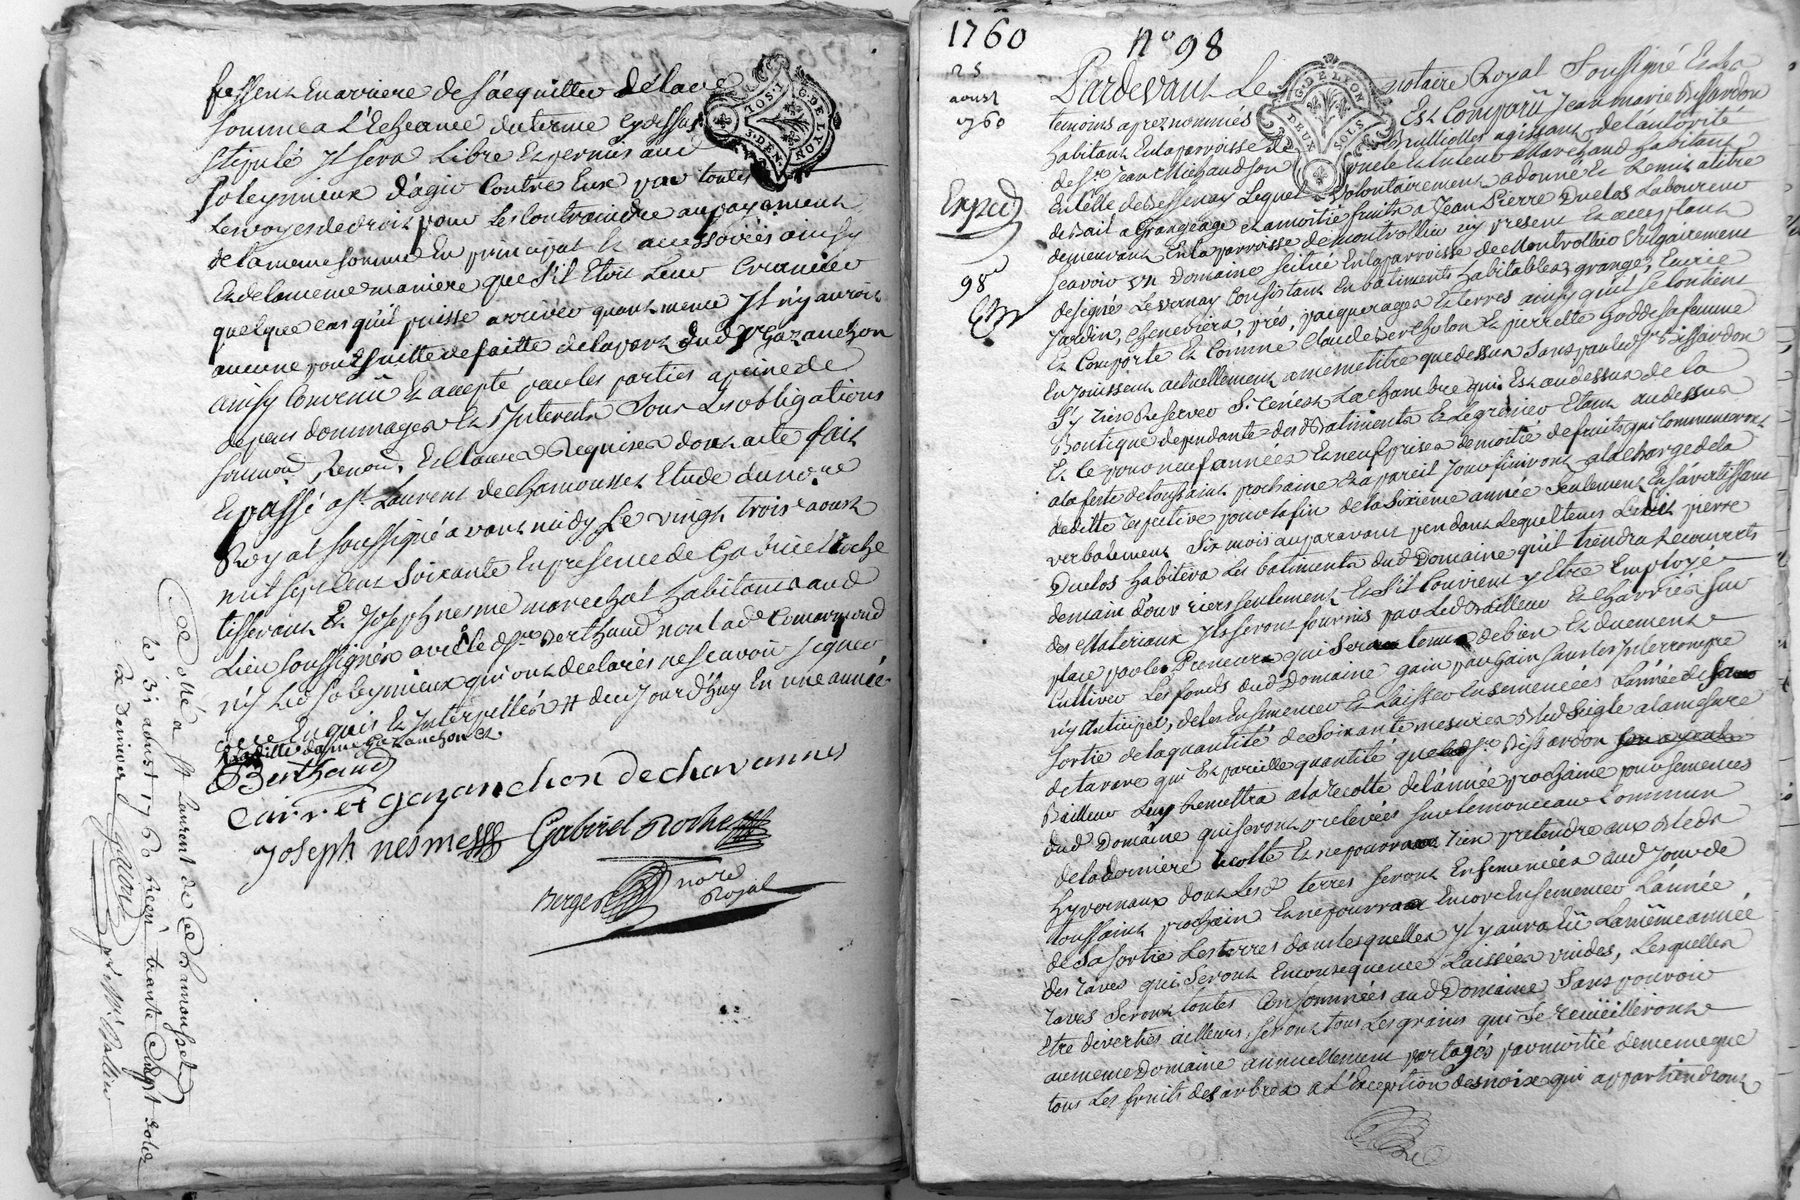 fussent en arriere de s'acquitter de lad.
somme a l'echeance du terme cy dessus
stipulé il sera libre et permis aud
Soleymieux d'agir contre eux par toutes
les voyes de droit pour les contraindre au payement
de la meme somme en principal et accessoires ainsy
et de la meme maniere que s'il etoit leur creancier
quelque cas qu'il puisse arriver quant meme il n'y auroit
aucune poursuitte de faitte de la part dud Sr Gazanchon
ainsy convenû et accepté par les parties a peine de
depens dommages et interets sous les obligations
soumon. Renon. et clauses requises dont acte fait
et passé a St Laurent de Chamousset Etude du nore
Royal soussigné avant midy le vingt trois aoust
mil sept cent soixante en presence de Gabriel Roche
tisserant et Joseph nesme marechal habitants aud
lieu soussignés avec le Sr Berthaud non lad Comarmond
n'y led Soleymieux qui ont declarés ne scavoir signer
de ce enquis et interpellés # de ce jourd'huy en une année
laditte dame Gazanchon et
Berthaud
Cairret gazanchon de chavannes
Joseph nesme Gabriel Roche
Berger nore
Royal
Collé a St Laurent de Chamousset
le 31 aoust 1760 Reçu trente sept sols
six deniers
1760 n° 98
25
aoust
1760
Exped
98
G. DE LYON
DEUX SOLS
G. DE LYON
Pardevant Le notaire Royal Soussigné et les
temoins apres nommés Est Comparû Jean marie Bissardon
habitant en la parroisse de Brullioles agissant de l'autorité
de Sr Jean Michaud son
en celle de Bessenay Lequel volontairement a donné et remis a titre
de Bail a Grangeage et a moitié fruits a Jean Pierre Duclos Laboureur
demeurant en la parroisse de montrottier icy present et acceptant
scavoir un Domaine scitué en la parroisse de Montrottier vulgairement
designé Levernay Consistant en batiments habitables, grange, Ecurie
Jardin, cheneviere, prés, paquerages et terres ainsy qu'il se contient
et Comporte et Comme Claude Bertholon et pierrette Goddesa femme
en jouissent actuellement a meme titre que dessus sans par led Sr Bissardon
s'y rien Reserver si ce n'est la chambre qui est au dessus de la
Boutique dependante des Batiments et le grenier etant au dessus
et ce pour neuf années et neuf prises de moitié de fruits qui commenceront
a la feste de toussaint prochaine et a pareil jour finiront a la charge de la
deditte respective pour la fin de la sixieme année seulement en s'avertissant
verbalement six mois auparavant pendant lequel tems Ledit pierre
Duclos habitera les batiments dud Domaine qu'il tiendra recouverts
de main d'ouvriers seulement et s'il convient y etre Employé
des Materiaux ils seront fournis par led Bailleur et charriés sur
place par les Preneurs qui sera tenus de bien et duement
cultiver les fonds dud Domaine gain par gain sans les interrompre
n'y anticiper, de les ensemencer et laisser ensemencés l'année de sa
sortie de la quantité de soixante mesures Bled Seigle a la mesure
de tarare qui en pareille quantité que led Sr Bissardon
Bailleur leur Remettra a la recolte de l'année prochaine pour semences
dud Domaine qui seront prelevées sur le monceau commun
de la derniere recolte et ne pourra rien pretendre aux Bleds
hyvernaux dont les d terres seront ensemencées aud jour de
toussaint prochain et ne pourra encore ensemencer l'année
de sa sortie les terres dans lesquelles il y aura eû la même année
des raves qui seront en consequence Laissées vuides, Lesquelles
raves seront toutes consommées aud Domaine sans pouvoir
etre diverties ailleurs. seront tous les grains qui se recüeilleront
au meme Domaine annuellement partagés par moitié de meme que
tous les fruits des arbres a l'Exception des noix qui appartiendront